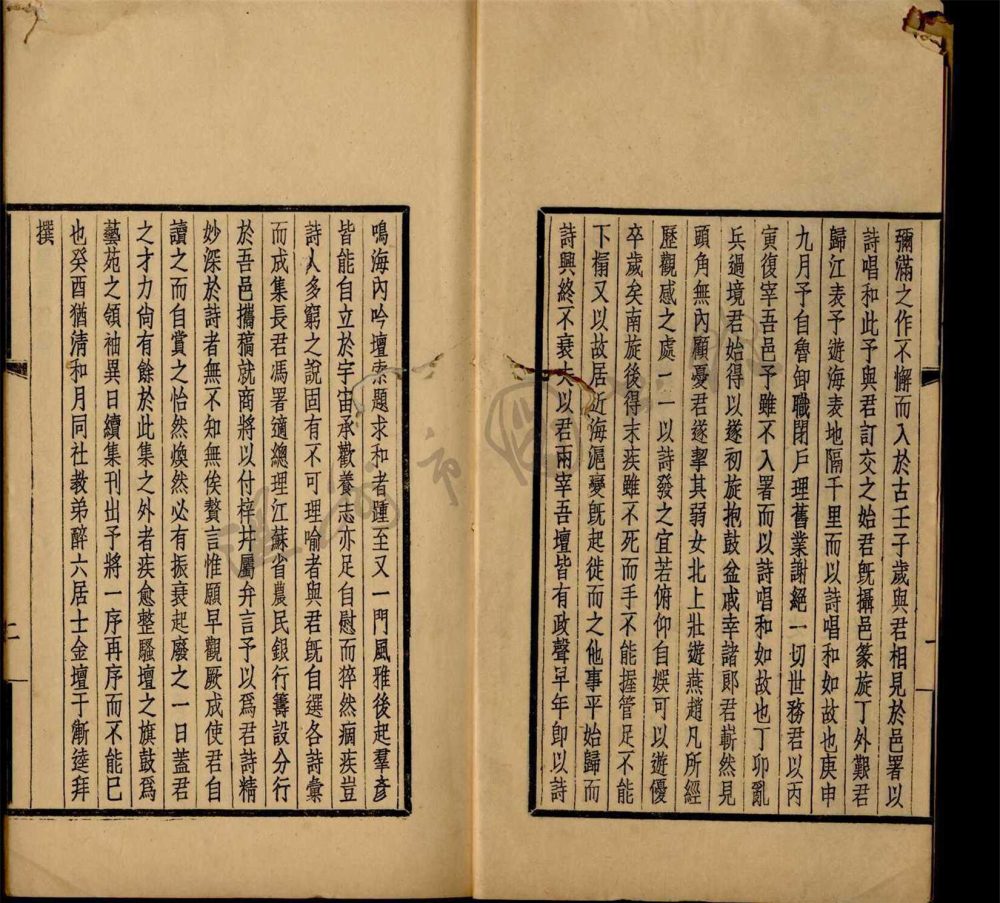 彌滿之作不懈而入於古壬子歲與君相見於邑署以
詩唱和此予與君訂交之始君旣攝邑篆旋丁外艱君
歸江表予遊海表地隔千里而以詩唱和如故也庚申
九月予自魯卸職閉戶理舊業謝絕一切世務君以丙
寅復宰吾邑予雖不入署而以詩唱和如故也丁卯亂
兵過境君始得以遂初旋抱鼓盆戚幸諸郞君嶄然見
頭角無內顧憂君遂挈其弱女北上壯遊燕趙凡所經
歷觀感之處一一以詩發之宜若俯仰自娛可以遊優
卒歲矣南旋後得末疾雖不死而手不能握管足不能
下榻又以故居近海滬變旣起徙而之他事平始歸而
詩興終不衰夫以君兩宰吾壇皆有政聲早年卽以詩
鳴海內吟壇索題求和者踵至又一門風雅後起羣彥
皆能自立於宇宙承歡養志亦足自慰而猝然痼疾豈
詩人多窮之說固有不可理喻者與君旣自選各詩彙
而成集長君馮署適總理江蘇省農民銀行籌設分行
於吾邑攜稿就商將以付梓幷屬弁言予以爲君詩精
妙深於詩者無不知無俟贅言惟願早觀厥成使君自
讀之而自賞之怡然煥然必有振衰起廢之一日蓋君
之才力尙有餘於此集之外者疾愈整騷壇之旗鼓爲
藝苑之領袖異日續集刊出予將一序再序而不能已
也癸酉猶清和月同社教弟醉六居士金壇于漸逵拜
撰
二